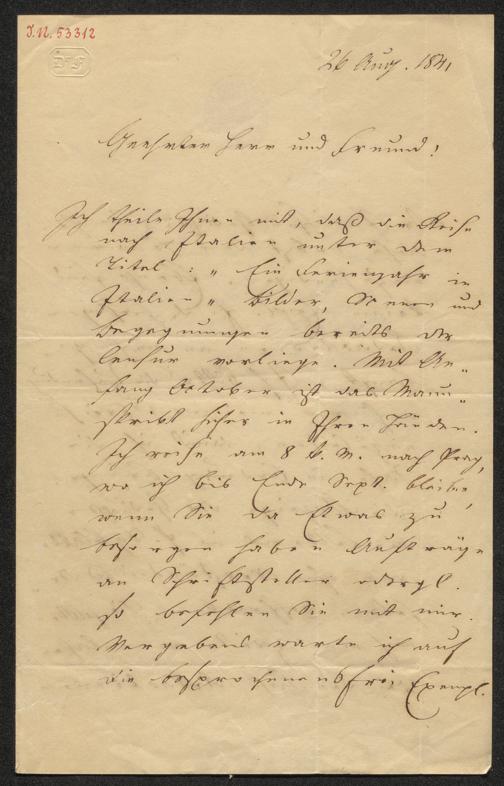 J.N. 53312
26 Aug. 1841
Geehrter Herr und Freund!
Ich theile Ihnen mit, daß die Reise
nach Italien unter dem
Titel: „Ein Ferienjahr in
Italien“ Bilder, Scenen und
Begegnungen bereits der
Censur vorliege. Mit An„
fang October ist das Manu„
skript sicher in Ihren Händen.
Ich reise am 8 d. M. nach Prag,
wo ich bis Ende Sept. bleibe,
wenn Sie da Etwas zu
besorgen haben Aufträge
an Schriftsteller odergl.
so befehlen Sie mit mir.
Vergebens warte ich auf
die besprochenen Exempl.